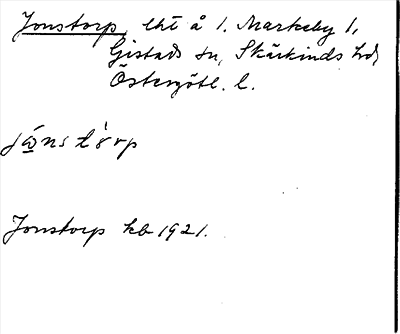 Jonstorp, lht å 1. Markeby 1,
Gistads sn, Skärkinds hd,
Östergötl. l.
jώ̣nstò̀rp
Jonstorp kb 1921.